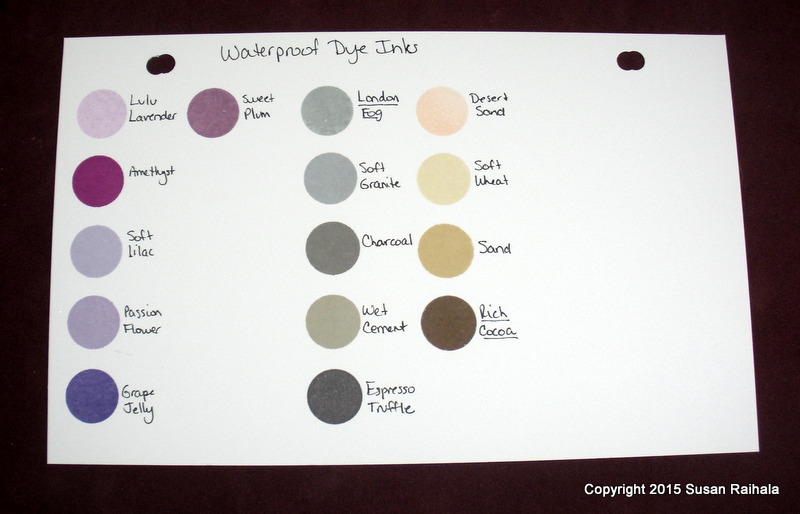 Waterproof Dye Inks
Lulu
Lavender
Sweet
Plum
London
Fog
Desert
Sand
Amethyst
Soft
Granite
Soft
Wheat
Soft
Lilac
Charcoal
Sand
Passion
Flower
Wet
Cement
Rich
Cocoa
Grape
Jelly
Espresso
Truffle
Copyright 2015 Susan Raihala